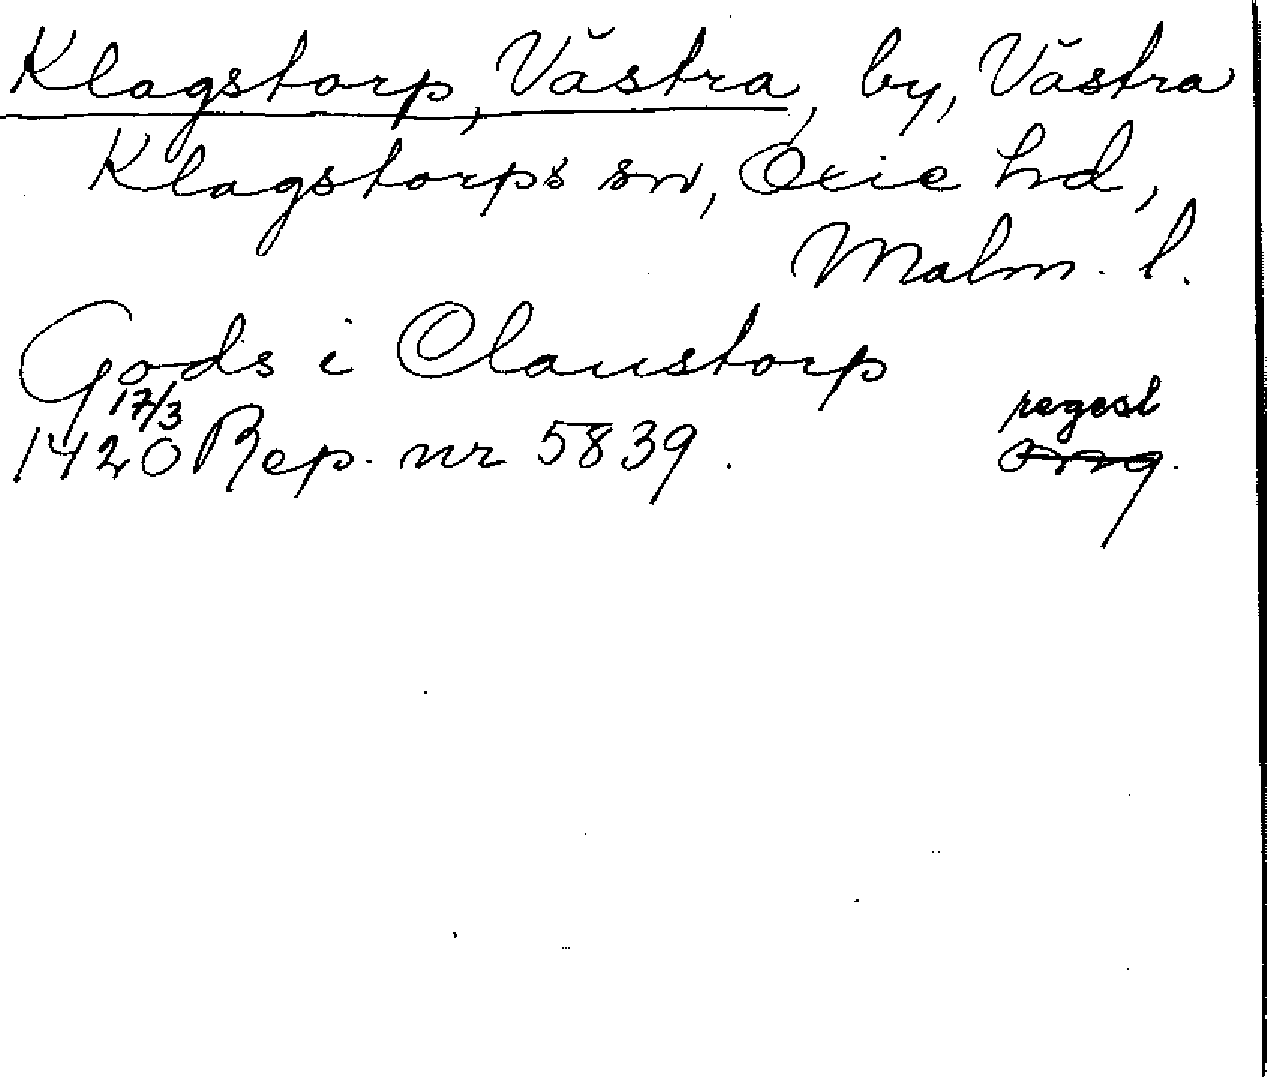 Klagstorp, Västra, by, Västra
Klagstorps sn, Oxie hd,
Malm. l.
Gods i Claustorp
17/3 regest
1420 Rep. nr 5839. orig.